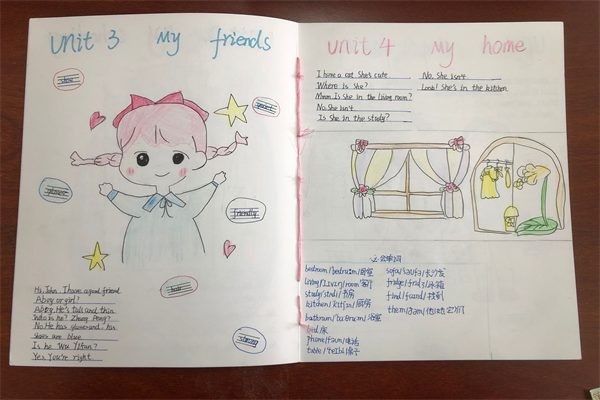 Unit 3 My friends
quiet
friendly
hair
strong
Hi, John. I have a good friend.
A boy or girl?
A boy. He's tall and thin
Who is he? Zhang Peng?
No. He has glasses and his
shoes are blue.
Is he Wu Yifan?
Yes. You're right.
Unit 4 My home
I have a cat. She's cute.
Where is she?
Mmm. Is she in the living room?
No. She isn't
Is she in the study?
No, she isn't
Look! She's in the kitchen
bedroom /bedru:m/ 卧室
living /lɪvɪŋ/ room 客厅
study /stʌdi/ 书房
kitchen /kɪtʃɪn/ 厨房
bathroom /bɑ:θru:m/ 浴室
bed 床
phone /fəun/ 电话
table /teɪbl/ 桌子
sofa /səufə/ 长沙发
fridge /frɪdʒ/ 冰箱
find /faɪnd/ 找到
them /ðəm/ 他(她、它)们